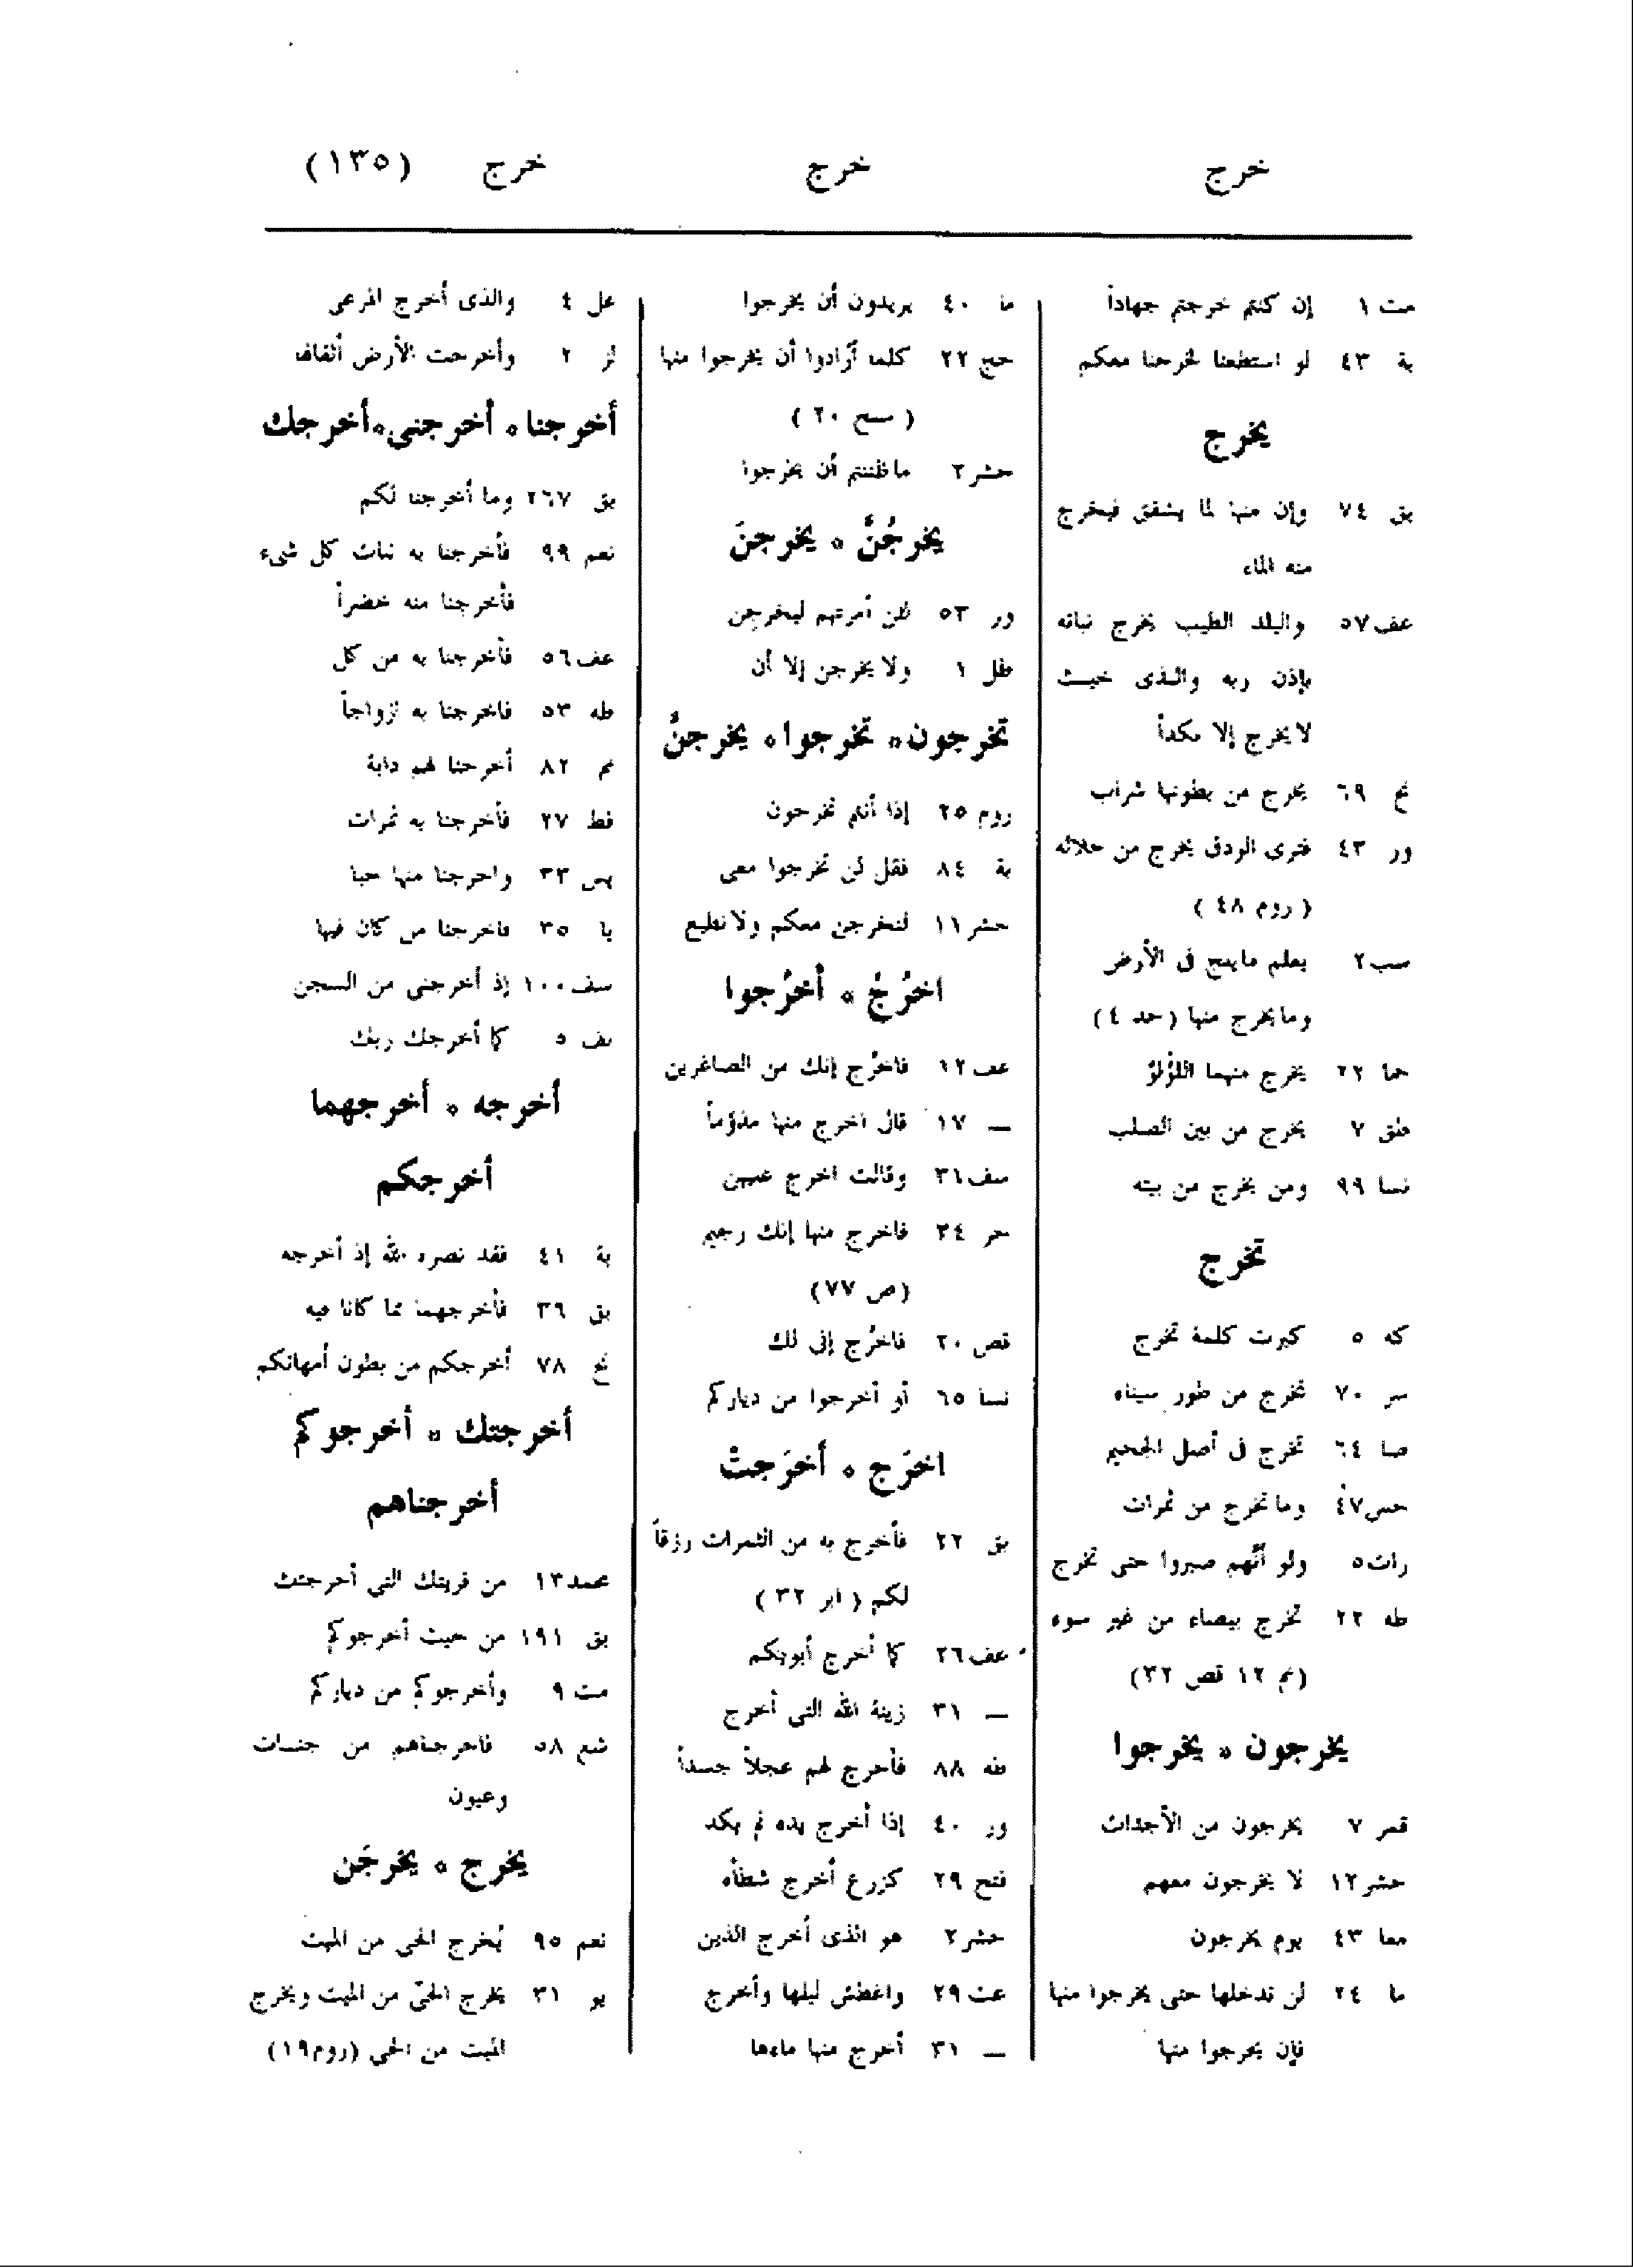 خرج
خرج
خرج (١٣٥)
مت ١ إن كنتم خرجتم جهاداً
بة ٤٣ لو استطعنا لخرجنا معكم
يخرج
بق ٧٤ وإن منها لما يشقق فيخرج
منه الماء
عف ٥٧ والبلد الطيب يخرج نباته
بإذن ربه والذى خبث
لا يخرج إلا نكداً
نح ٦٩ يخرج من بطونها شراب
ور ٤٣ فترى الودق يخرج من خلاله
(روم ٤٨)
سب ٢ يعلم ما يلج فى الأرض
وما يخرج منها (حد ٤)
حما ٢٢ يخرج منهما اللؤلؤ
طق ٧ يخرج من بين الصلب
نسا ٩٩ ومن يخرج من بيته
تخرج
كه ٥ كبرت كلمة تخرج
سر ٧٠ تخرج من طور سيناء
صا ٦٤ تخرج فى أصل الجحيم
حس ٤٧ وما تخرج من ثمرات
رات ٥ ولو أنّهم صبروا حتى تخرج
طه ٢٢ تخرج بيضاء من غير سوء
(نم ١٢ قص ٣٢)
يخرجون ٥ يخرجوا
قمر ٧ يخرجون من الأجداث
حشر ١٢ لا يخرجون معهم
معا ٤٣ يوم يخرجون
ما ٢٤ لن ندخلها حتى يخرجوا منها
فإن يخرجوا منها
ما ٤٠ يريدون أن يخرجوا
حج ٢٢ كلما أرادوا أن يخرجوا منها
(سبح ٢٠)
حشر ٢ ما ظننتم أن يخرجوا
يخرجُنَّ ٥ يخرجنَ
ور ٥٣ لئن أمرتهم ليخرجن
طل ١ ولا يخرجن إلا أن
تخرجون ٥ تخرجوا ٥ يخرجنَّ
روم ٢٥ إذا أنتم تخرجون
بة ٨٤ فقل لن تخرجوا معى
حشر ١١ لنخرجن معكم ولا نطيع
اخرُجْ ٥ أخرُجوا
عف ١٢ فاخرُج إنك من الصاغرين
ـــ ١٧ قال اخرج منها مذؤماً
سف ٣١ وقالت اخرج عليهن
حر ٣٤ فاخرج منها إنك رجيم
(ص ٧٧)
قص ٢٠ فاخرُج إنى لك
نسا ٦٥ أو أخرجوا من دياركم
اخرَج ٥ أخرَجتْ
بق ٢٢ فأخرج به من الثمرات رزقاً
لكم (ابر ٣٢)
عف ٢٦ كما أخرج أبويكم
ـــ ٣١ زينة الله التى أخرج
طه ٨٨ فأخرج لهم عجلاً جسداً
ور ٤٠ إذا أخرج يده لم يكد
فتح ٢٩ كزرع أخرج شطأه
حشر ٢ هو الذى أخرج الذين
عت ٢٩ واغطش ليلها وأخرج
ـــ ٣١ أخرج منها ماءها
عل ٤ والذى أخرج المرعى
لز ٢ وأخرجت الأرض أثقالها
أخرجنا ٥ أخرجنى ٥ أخرجك
بق ٢٦٧ وما أخرجنا لكم
نعم ٩٩ فأخرجنا به نبات كل شىء
فأخرجنا منه خضراً
عف ٥٦ فأخرجنا به من كل
طه ٥٣ فاخرجنا به أزواجاً
نم ٨٢ أخرجنا لهم دابة
فط ٢٧ فأخرجنا به ثمرات
يس ٣٣ واخرجنا منها حبا
يا ٣٥ فاخرجنا من كان فيها
سف ١٠٠ إذ أخرجنى من السجن
نف ٥ كما أخرجك ربك
أخرجه ٥ أخرجهما
أخرجكم
بة ٤١ فقد نصره الله إذ أخرجه
بق ٣٦ فأخرجهما مما كانا فيه
نح ٧٨ أخرجكم من بطون أمهاتكم
أخرجتك ٥ أخرجوكم
أخرجناهم
محمد ١٣ من قريتك التى أخرجتك
بق ١٩١ من حيث أخرجوكم
مت ٩ وأخرجوكم من دياركم
شع ٥٨ فاخرجناهم من جنات
وعيون
يخرج ٥ يخرجَن
نعم ٩٥ يُخرج الحى من الميت
يو ٣١ يخرج الحىّ من الميت ويخرج
الميت من الحى (روم ١٩)